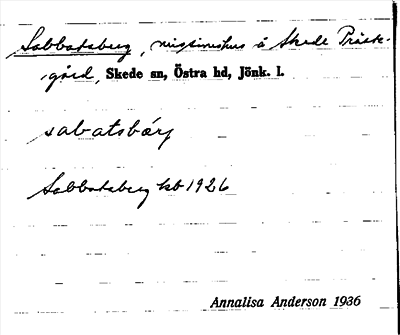 Sabbatsberg, missionshus å Skede Präst-
gård, Skede sn, Östra hd, Jönk. l.
sabatsbärj
Sabbatsberg kb 1926
Annalisa Anderson 1936